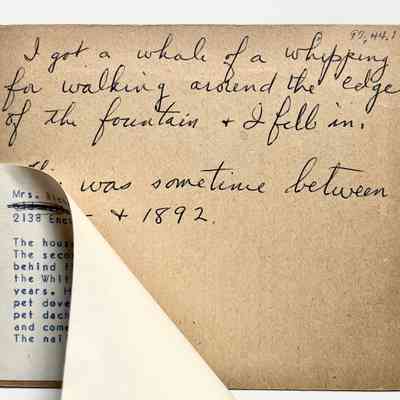 97.44.1
I got a whale of a whipping
for walking around the edge
of the fountain + I fell in.
was sometime between
- + 1892.
Mrs.
2138
The house
The seco
behind t
the Whit
years. H
pet dove
pet dach
and come
The nai